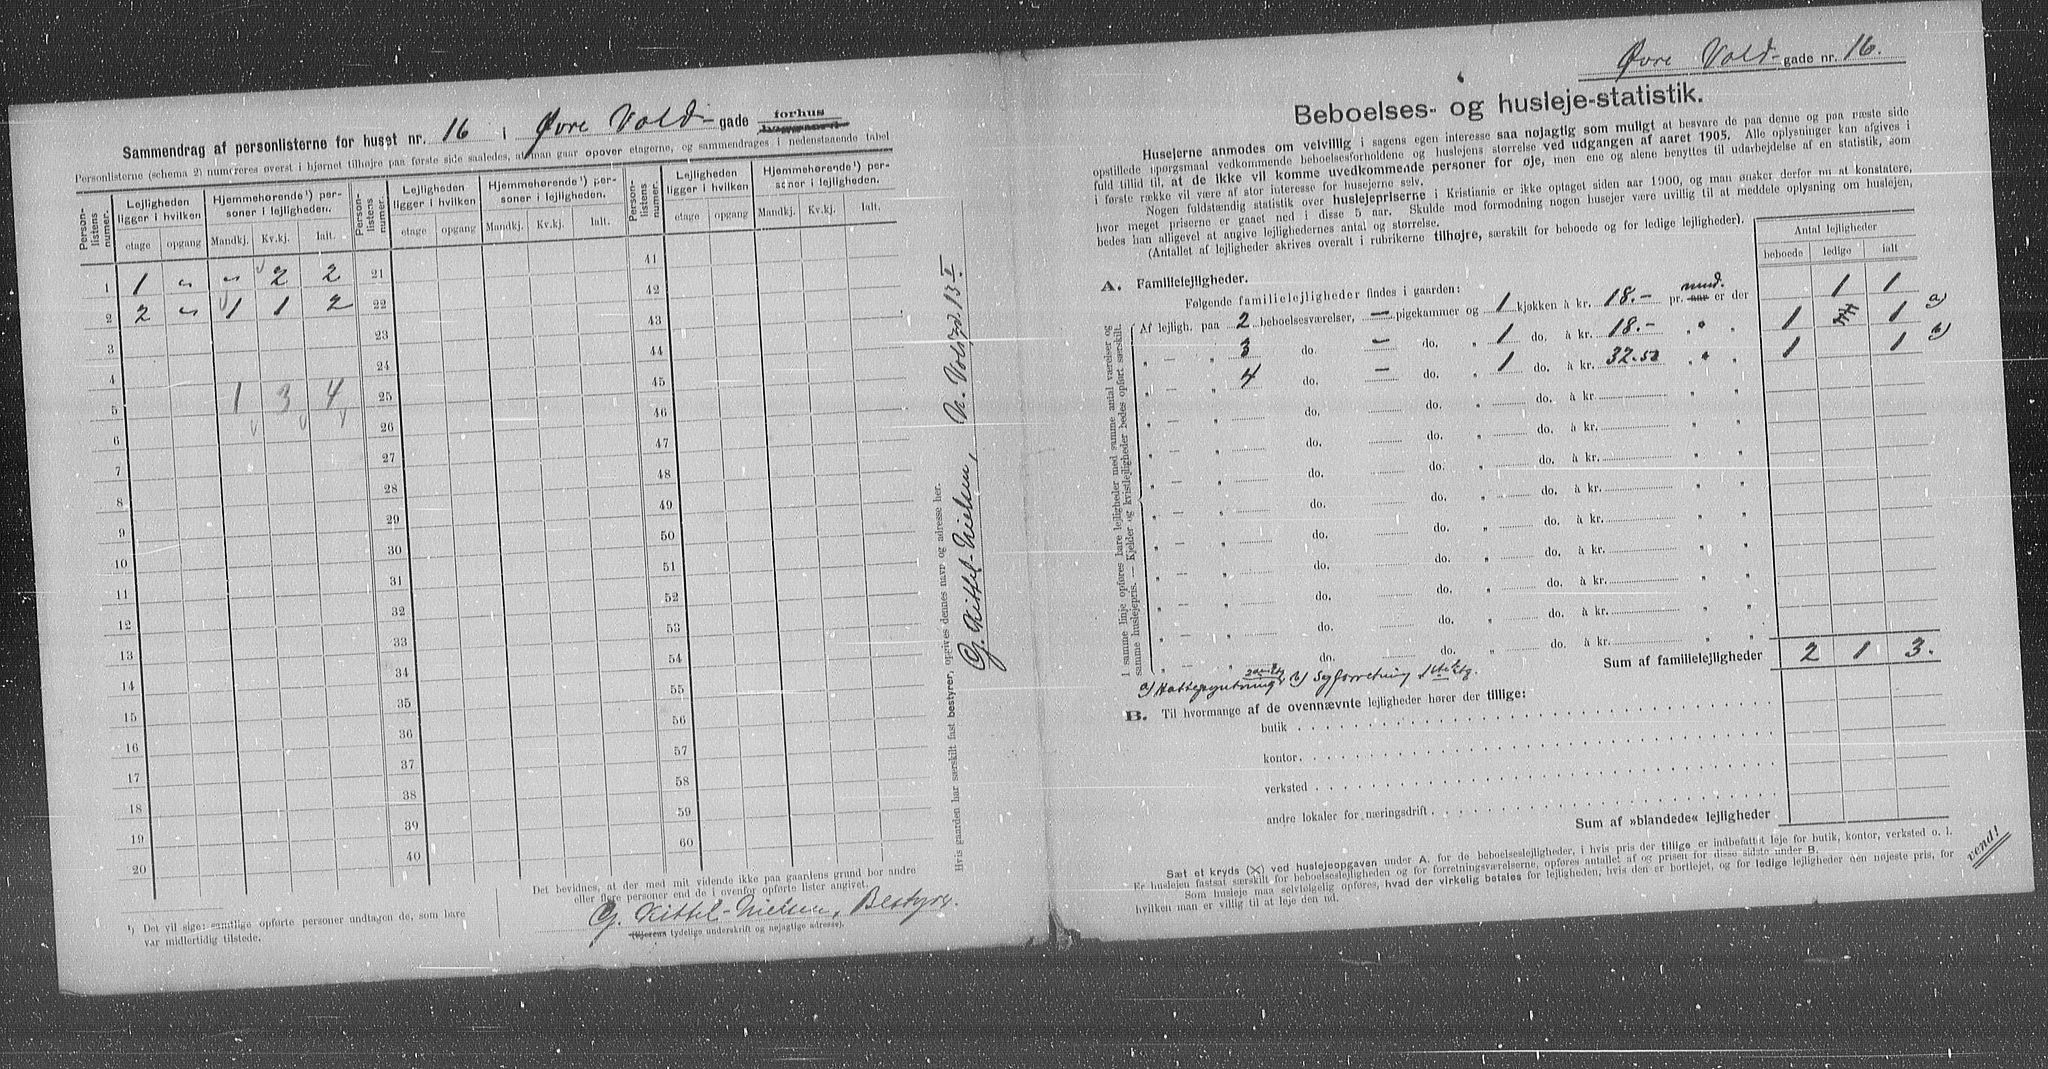 Sammendrag af personlisterne for huset nr. 16 i Øvre Vold- gade forhus baggaard.
Personlisterne (schema 2) numereres øverst i hjørnet tilhøjre paa første side saaledes, at man gaar opover etagerne, og sammendrages i nedenstaaende tabel
Person-listens numer. Lejligheden ligger i hvilken Hjemmehørende¹) personer i lejligheden. Person-listens numer. Lejligheden ligger i hvilken Hjemmehørende¹) personer i lejligheden. Person-listens numer. Lejligheden ligger i hvilken Hjemmehørende¹) personer i lejligheden.
etage opgang Mandkj. Kv.kj. Ialt. etage opgang Mandkj. Kv.kj. Ialt. etage opgang Mandkj. Kv.kj. Ialt.
1 1 „ „ 2 2 21 41
2 2 „ 1 1 2 22 42
3 23 43
4 24 44
5 1 3 4 25 45
6 26 46
7 27 47
8 28 48
9 29 49
10 30 50
11 31 51
12 32 52
13 33 53
14 34 54
15 35 55
16 36 56
17 37 57
18 38 58
19 39 59
20 40 60
¹) Det vil sige: samtlige opførte personer undtagen de, som bare
var midlertidig tilstede.
Det bevidnes, at der med mit vidende ikke paa gaardens grund bor andre
eller flere personer end de i ovenfor opførte lister angivet.
G. Kittel-Nielsen, Bestyrer.
(Ejerens tydelige underskrift og nøjagtige adresse).
Hvis gaarden har særskilt fast bestyrer, opgives dennes navn og adresse her.
G. Kittel-Nielsen, N. Voldgd. 13 I
Øvre Vold- gade nr. 16.
Beboelses- og husleje-statistik.
Husejerne anmodes om velvillig i sagens egen interesse saa nøjagtig som muligt at besvare de paa denne og paa næste side
opstillede spørgsmaal vedkommende beboelsesforholdene og huslejens størrelse ved udgangen af aaret 1905. Alle oplysninger kan afgives i
fuld tillid til, at de ikke vil komme uvedkommende personer for øje, men ene og alene benyttes til udarbejdelse af en statistik, som
i første række vil være af stor interesse for husejerne selv.
Nogen fuldstændig statistik over huslejepriserne i Kristiania er ikke optaget siden aar 1900, og man ønsker derfor nu at konstatere,
hvor meget priserne er gaaet ned i disse 5 aar. Skulde mod formodning nogen husejer være uvillig til at meddele oplysning om huslejen,
bedes han alligevel at angive lejlighedernes antal og størrelse.
(Antallet af lejligheder skrives overalt i rubrikerne tilhøjre, særskilt for beboede og for ledige lejligheder).
Antal lejligheder
beboede ledige ialt
A. Familielejligheder.
Følgende familielejligheder findes i gaarden:
I samme linje opføres bare lejligheder med samme antal værelser og
samme huslejepris. — Kjelder og kvistlejligheder bedes opført særskilt.
Af lejligh. paa 2 beboelsesværelser, — pigekammer og 1 kjøkken à kr. 18.- pr. aar mnd. er der 1 1
„ — „ 3 do. — do. „ 1 do. à kr. 18.- „ „ 1 1 a)
„ — „ 4 do. — do. „ 1 do. à kr. 32.50 „ „ 1 1 b)
„ — „ do. do. „ do. à kr. „ „
„ — „ do. do. „ do. à kr. „ „
„ — „ do. do. „ do. à kr. „ „
„ — „ do. do. „ do. à kr. „ „
„ — „ do. do. „ do. à kr. „ „
„ — „ do. do. „ do. à kr. „ „
„ — „ do. do. „ do. à kr. „ „
„ — „ do. do. „ do. à kr. „ „
„ do. do. „ do. à kr. „ „
Sum af familielejligheder 2 1 3.
a) Hattepyntning 2den etg b) Syforretning 1ste etg.
B. Til hvormange af de ovennævnte lejligheder hører der tillige:
butik
kontor
verksted
andre lokaler for næringsdrift
Sum af »blandede« lejligheder
Sæt et kryds (X) ved huslejeopgaven under A. for de beboelseslejligheder, i hvis pris der tillige er indbefattet leje for butik, kontor, verksted o. l.
Er huslejen fastsat særskilt for beboelseslejligheden og for forretningsværelserne, opføres antallet af og prisen for disse sidste under B.
Som husleje maa selvfølgelig opføres, hvad der virkelig betales for lejligheden, hvis den er bortlejet, og for ledige lejligheder den nøjeste pris, for
hvilken man er villig til at leje den ud.
vend!